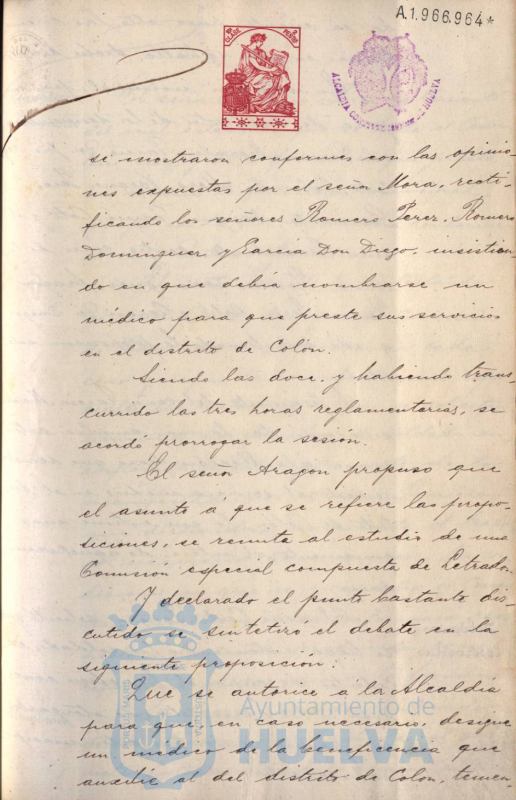 A.1.966.964*
ALCALDIA CONSTITUCIONAL - HUELVA
se mostraron conformes con las opinio-
nes expuestas por el señor Mora, recti-
ficando los señores Romero Perez, Romero
Dominguez y Garcia Don Diego, insistien-
do en que debía nombrarse un
médico para que preste sus servicios
en el distrito de Colón.
Siendo las doce, y habiendo trans-
currido las tres horas reglamentarias, se
acordó prorrogar la sesión.
El señor Aragon propuso que
el asunto á que se refiere las propo-
siciones, se remita al estudio de una
Comisión especial compuesta de Letrados.
Y declarado el punto bastante dis-
cutido se sintetizó el debate en la
siguiente proposición:
Que se autorice á la Alcaldía
para que, en caso necesario, designe
un médico de la beneficencia que
auxilie al del distrito de Colon, tenien-
Ayuntamiento de
HUELVA